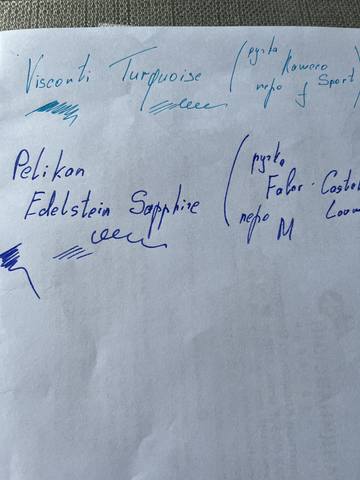 Visconti Turquoise
(ручка Kaweco
перо f Sport)
Pelikan
Edelstein Sapphire
(ручка
Faber-Castell
Loom
перо M